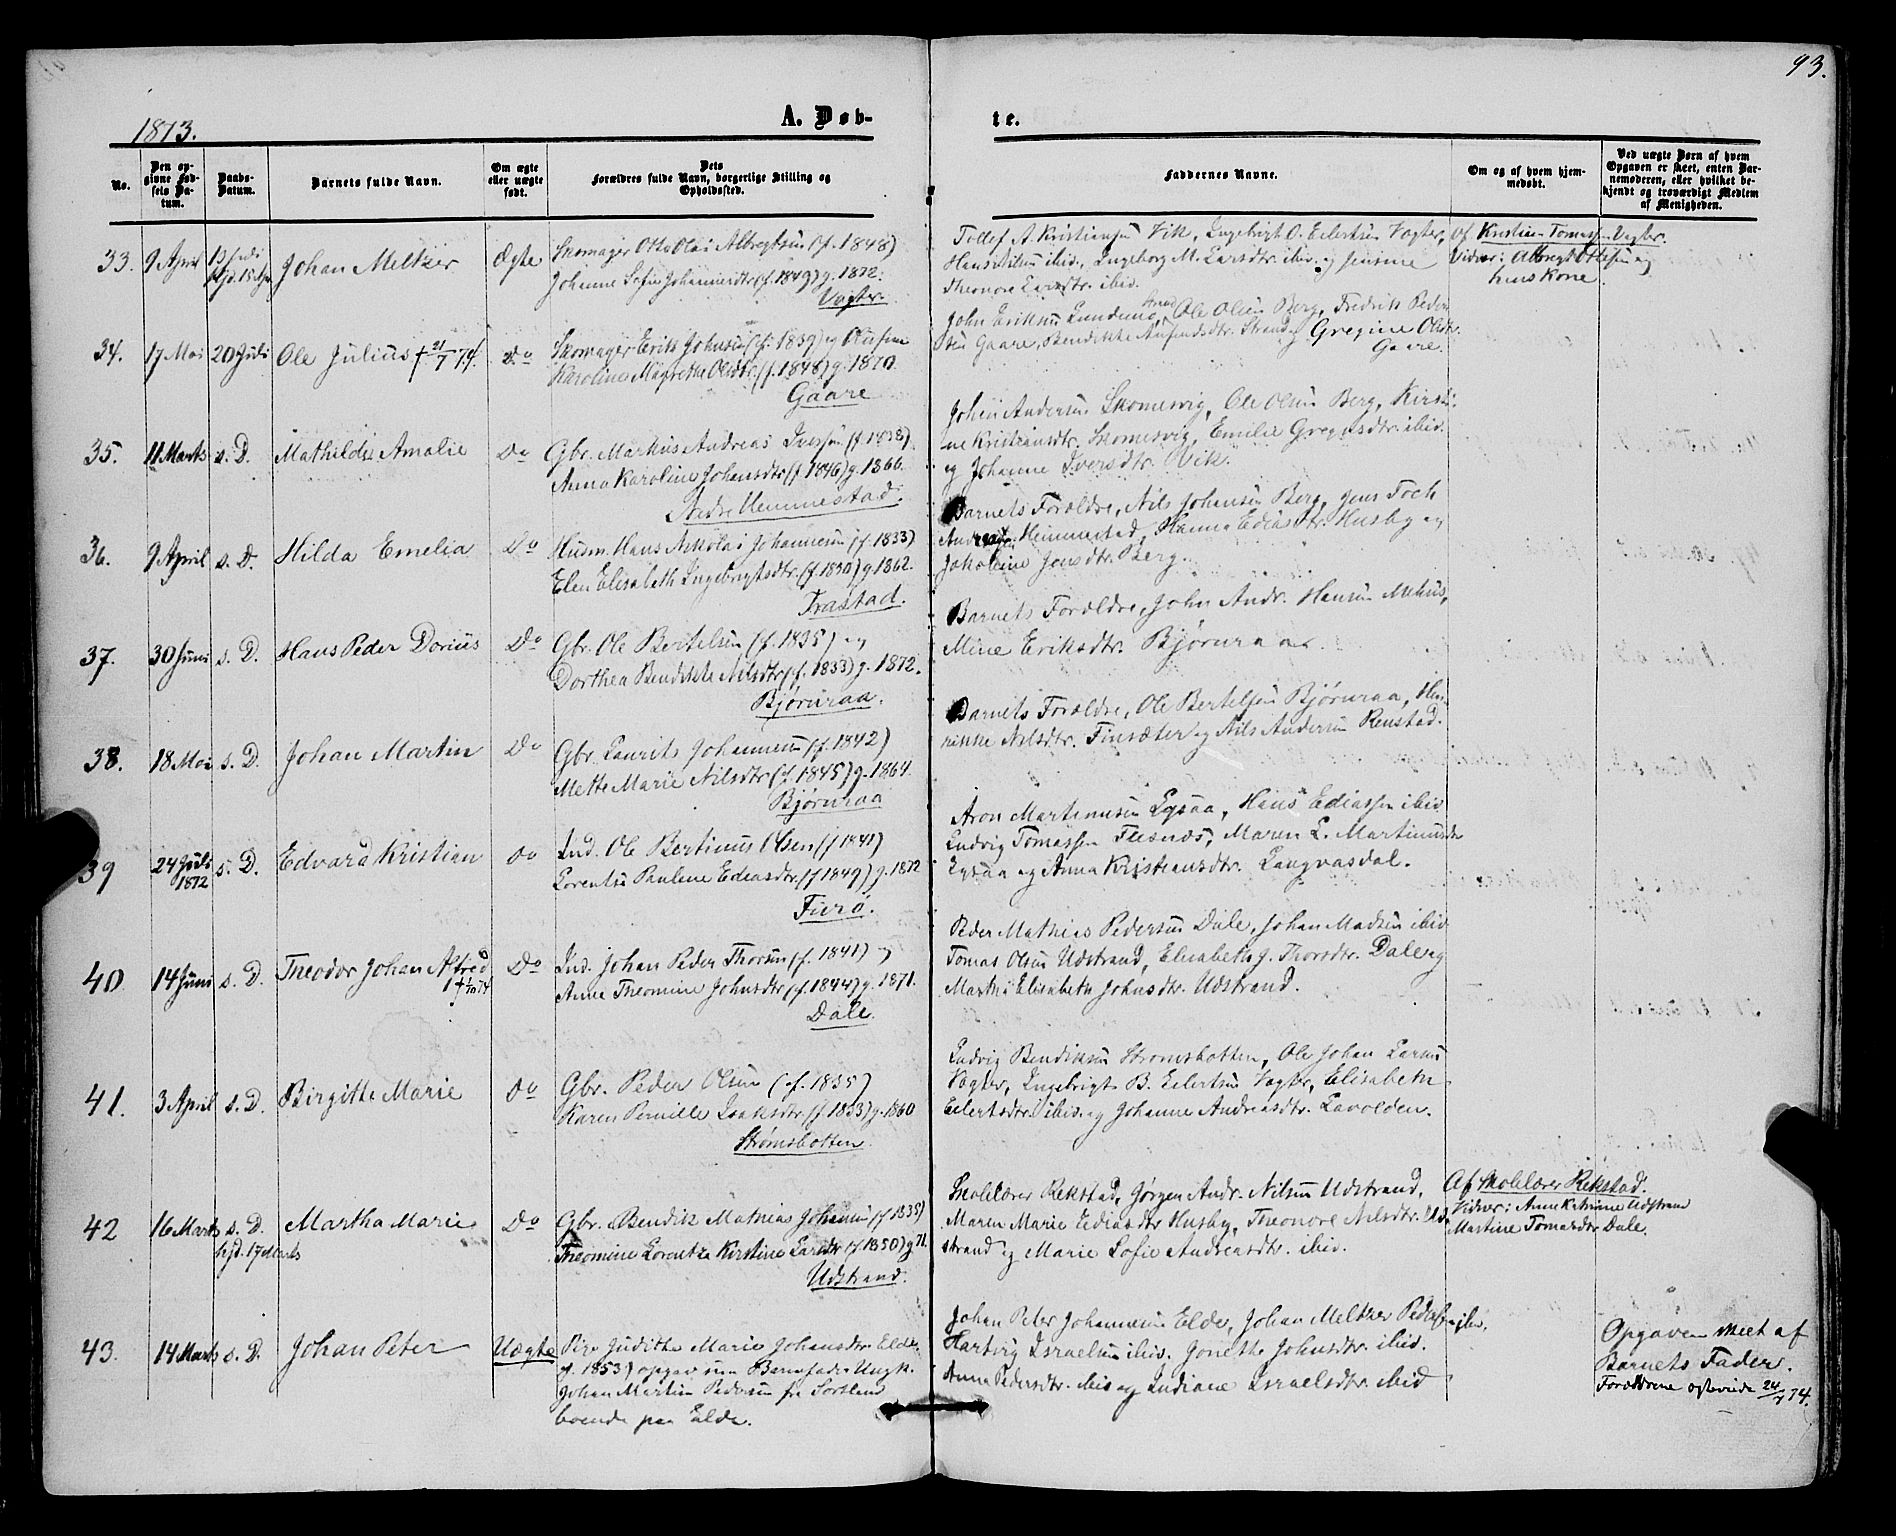 93.
1873.
A. Døb-
te.
No.
Den op-
givne Fød-
sels Da-
tum.
Daabs-
Datum.
Barnets fulde Navn.
Om ægte
eller uægte
født.
Dets
Forældres fulde Navn, borgerlige Stilling og
Opholdssted.
Faddernes Navne.
Om og af hvem hjem-
medøbt.
Ved uægte Børn af hvem
Opgaven er skeet, enten Bar-
nemoderen, eller hvilket be-
kjendt og troværdigt Medlem
af Menigheden.
33. 9 April 13 Juli Johan Meltzer Ægte
hjd. 13 Apr
Skomager Otto Olai Albregtsen (f. 1848)
Johanne Sofie Johannesdtr (f. 1849) g. 1872.
Vogter.
Tollef A. Kristiansen Vik, Ingebrigt O. Eilertsen Vogter,
Hans Nilsen ibid., Ingeborg M. Larsdtr. ibid. og Jensine
Theonore Larsdtr. ibid.
Af Kristian Tomass. Vogter.
Vidner: Albregt Ottesen og
hans Kone.
34. 17 Mai 20 Juli Ole Julius † 21/7 74. Do
Skomager Erik Johnsen (f. 1839) og Olufine
Karoline Magrethe Olsdtr. (f. 1848) g. 1870.
Gaare
John Eriksen Lundenes, Ole Olsen Berg, Fredrik Peder-
sen Gaare, Bendikke Amfindsdtr. Strand og Gregine Olsdtr.
Gaare.
35. 11 Marts s. D. Mathilde Amalie Do
Gbr. Markus Andreas Iversen (f. 1838)
Anna Karoline Johansdtr (f. 1846) g. 1866.
Indre Hemmestad.
John Andersen Skomesvig, Ole Olsen Berg, Kirsti-
ne Kristiansdtr. Skomesvig, Emilie Gregersdtr. ibid.
og Johanne Iversdtr. Vik.
36. 9 April s. D. Hilda Emelia Do
Husm. Hans Nikolai Johannesen (f. 1833)
Elen Elisabeth Ingebrigtsdtr. (f. 1830) g. 1862.
Trastad.
Barnets Forældre, Nils Johansen Berg, Jens Foch
Andreassen Hemmestad, Hanna Ediasdtr. Husby og
Jakobine Jensdtr. Berg.
37. 30 Juni s. D. Hans Peder Dorius Do
Gbr. Ole Bertelsen (f. 1835) og
Dorthea Bendikte Nilsdtr (f. 1833) g. 1872.
Bjørnraa.
Barnets Forældre, John Andr. Hansen Mehus,
Mine Eriksdtr. Bjørnraa.
38. 18 Mai s. D. Johan Martin Do
Gbr. Laurits Johannesen (f. 1842)
Mette Marie Nilsdtr (f. 1845) g. 1864.
Bjørnraa
Barnets Forældre, Ole Bertelsen Bjørnraa, Hen-
rikke Nilsdtr. Finsæter og Nils Andersen Renstad.
39 24 Juli
1872 s. D. Edvard Kristian Do
Ind. Ole Bertinus Olsen (f 1841)
Lorentse Pauline Ediasdtr. (f 1849) g. 1872
Furø.
Aron Martinusen Lysaa, Hans Ediassen ibid
Ludvig Tomassen Flesnæs, Maren L. Martinusdtr
Lysaa og Anna Kristiansdtr. Langvasdal.
40 14 Juni s. D. Theodor Johan Alfred Do
Ind. Johan Peder Thorsen (f. 1841) og
Anne Theomine Johnsdtr (f. 1844) g. 1871.
Dale.
Peder Mathias Pedersen Dale, Johan Madsen ibid
Tomas Olsen Udstrand, Elisabeth J. Thorsdtr. Dale og
Martha Elisabeth Johnsdtr. Udstrand.
41. 3 April s. D. Birgitte Marie Do
Gbr. Peder Olsen (f. 1835)
Karen Pernille Isaksdtr. (f. 1833) g. 1860
Strømsbotten.
Ludvig Bendiksen Strømsbotten, Ole Johan Larsen
Vogter, Ingebrigt B. Eilertsen Vogter, Elisabeth
Eilertsdtr. ibid. og Johanne Andreasdtr. Lavolden.
42 16 Marts s. D. Martha Marie Do
hjd. 17 Marts
Gbr. Bendik Mathias Johansen (f. 1835)
Theomine Lorentze Kirstine Larsdtr (f 1850) g 71.
Udstrand.
Skolelærer Rekstad, Jørgen Andr. Nilsen Udstrand,
Maren Marie Ediasdtr Husby, Theonore Nilsdtr. Ud-
strand og Marie Sofie Andreasdtr. ibid.
Af Skolelærer Rekstad.
Vidner: Anne Katrine Udstrand
Martine Tomasdtr Dale.
43. 14 Marts s. D. Johan Peter Uægte
Pige Judithe Marie Johansdtr Elde
(f. 1853) opgav som Barnefader Ungk.
Johan Martin Pedersen fra Sortland
boende paa Elde.
Johan Peter Johannesen Elde, Johan Meltzer Pedersen ibid.
Hartvig Israelsen ibid. Jonette Johnsdtr. ibid.
Anne Pedersdtr. ibid og Indiane Israelsdtr. ibid
Opgaven skeet af
Barnets Fader.
Forældrene ægteviede 24/7 74.